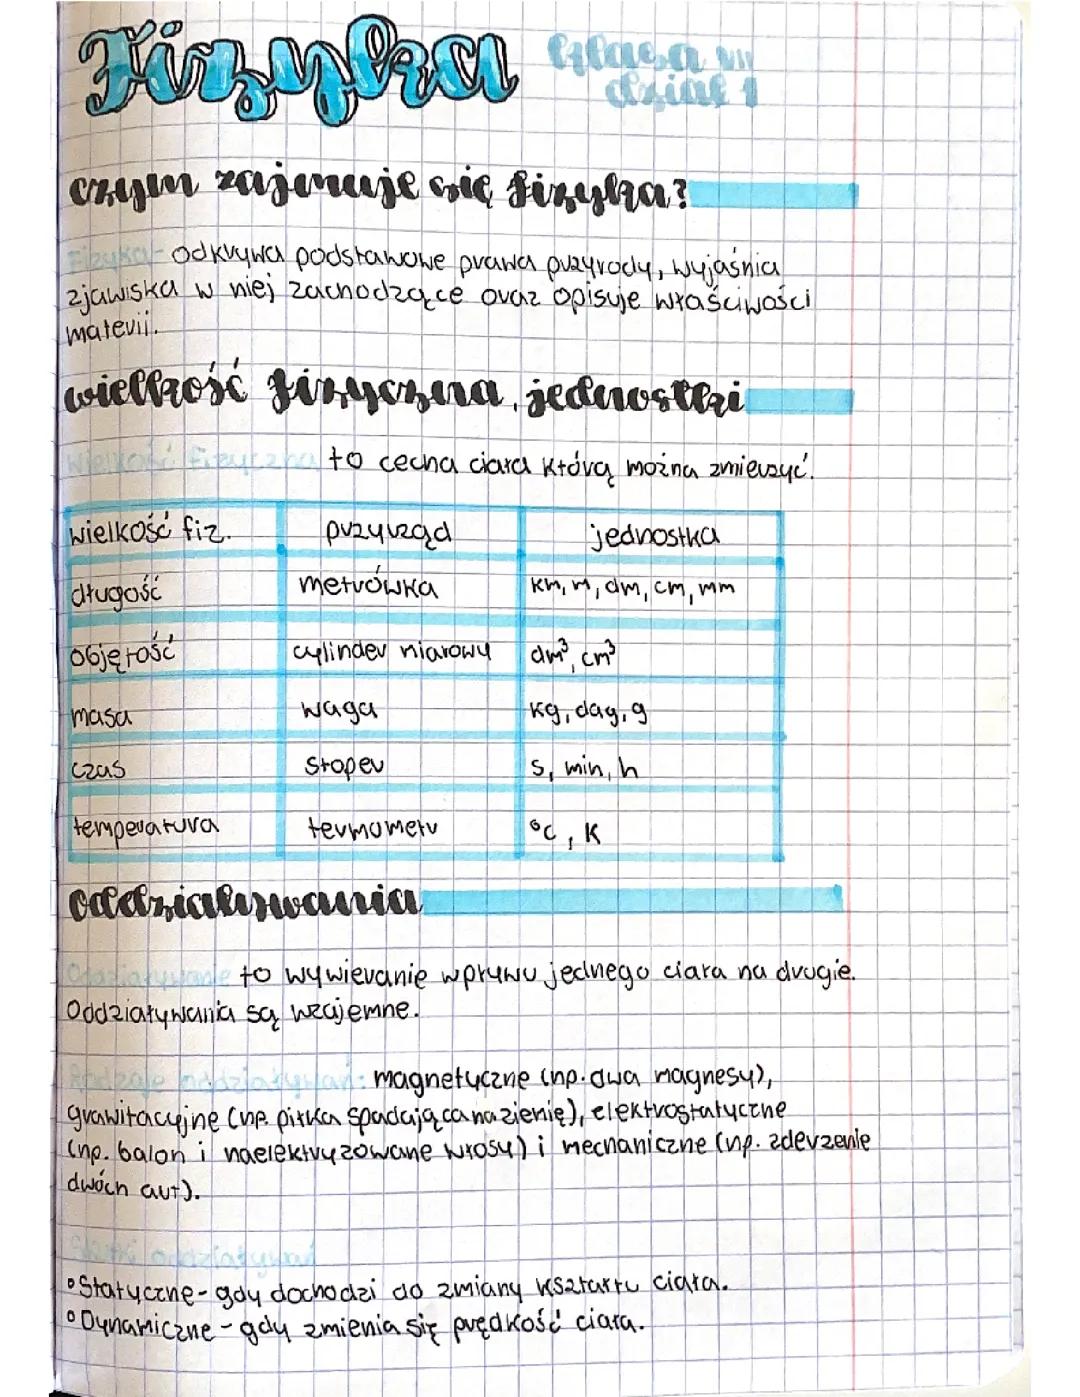 Fizyka
klasa VII
dział 1
czym zajmuje się fizyka?
Fizyka - odkrywa podstawowe prawa przyrody, wyjaśnia
zjawiska w niej zachodzące oraz opisuje właściwości
materii.
wielkość fizyczna, jednostki
Wielkość fizyczna to cecha ciała którą można zmierzyć.
wielkość fiz. przyrząd jednostka
długość metrówka km, m, dm, cm, mm
objętość cylinder miarowy dm³, cm³
masa waga kg, dag, g
czas stoper s, min, h
temperatura termometr °C, K
oddziaływania
Oddziaływanie to wywieranie wpływu jednego ciała na drugie.
Oddziaływania są wzajemne.
Rodzaje oddziaływań: magnetyczne (np. dwa magnesy),
grawitacyjne (np. piłka spadająca na ziemię), elektrostatyczne
(np. balon i naelektryzowane włosy) i mechaniczne (np. zderzenie
dwóch aut).
Skutki oddziaływań
• Statyczne - gdy dochodzi do zmiany kształtu ciała.
• Dynamiczne - gdy zmienia się prędkość ciała.